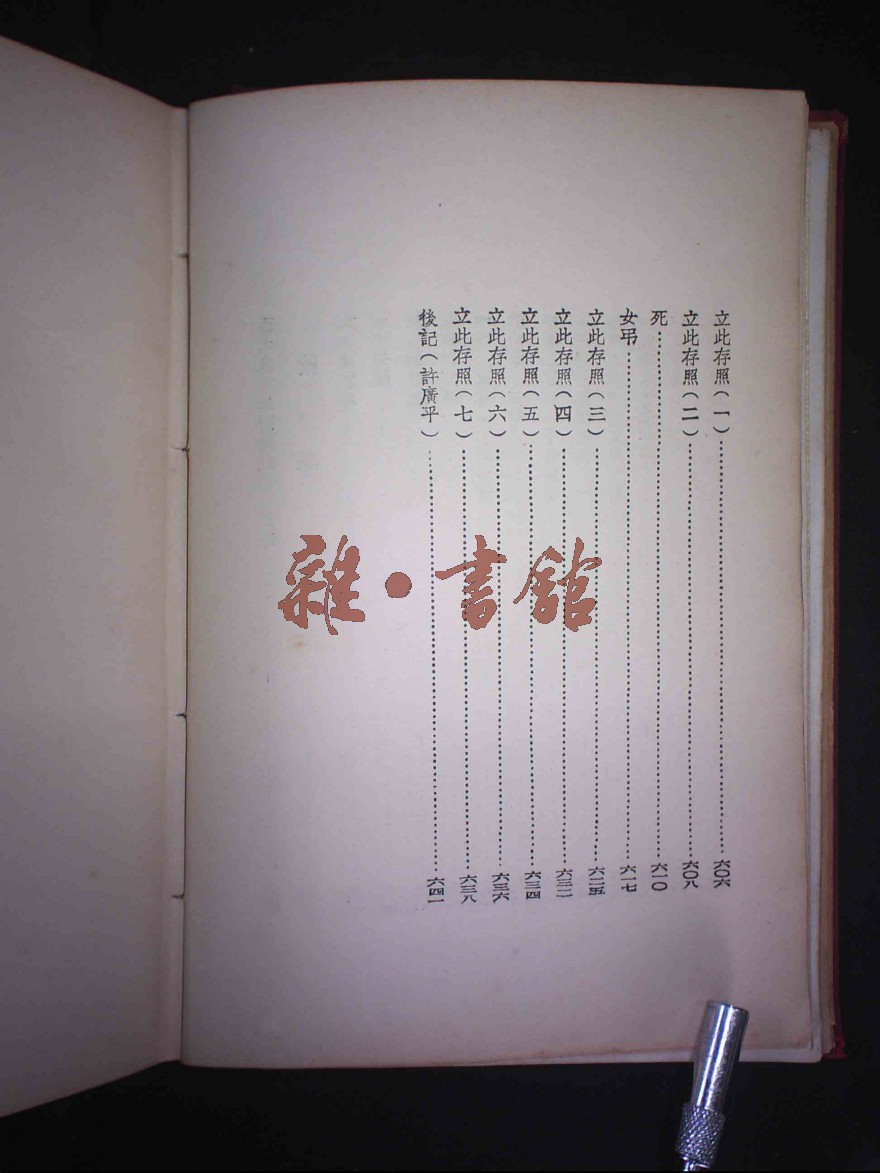 立此存照(一)……六〇六
立此存照(二)……六〇八
死……六一〇
女吊……六一七
立此存照(三)……六二五
立此存照(四)……六三二
立此存照(五)……六三四
立此存照(六)……六三六
立此存照(七)……六三八
後記(許廣平)……六四一
雜·書館